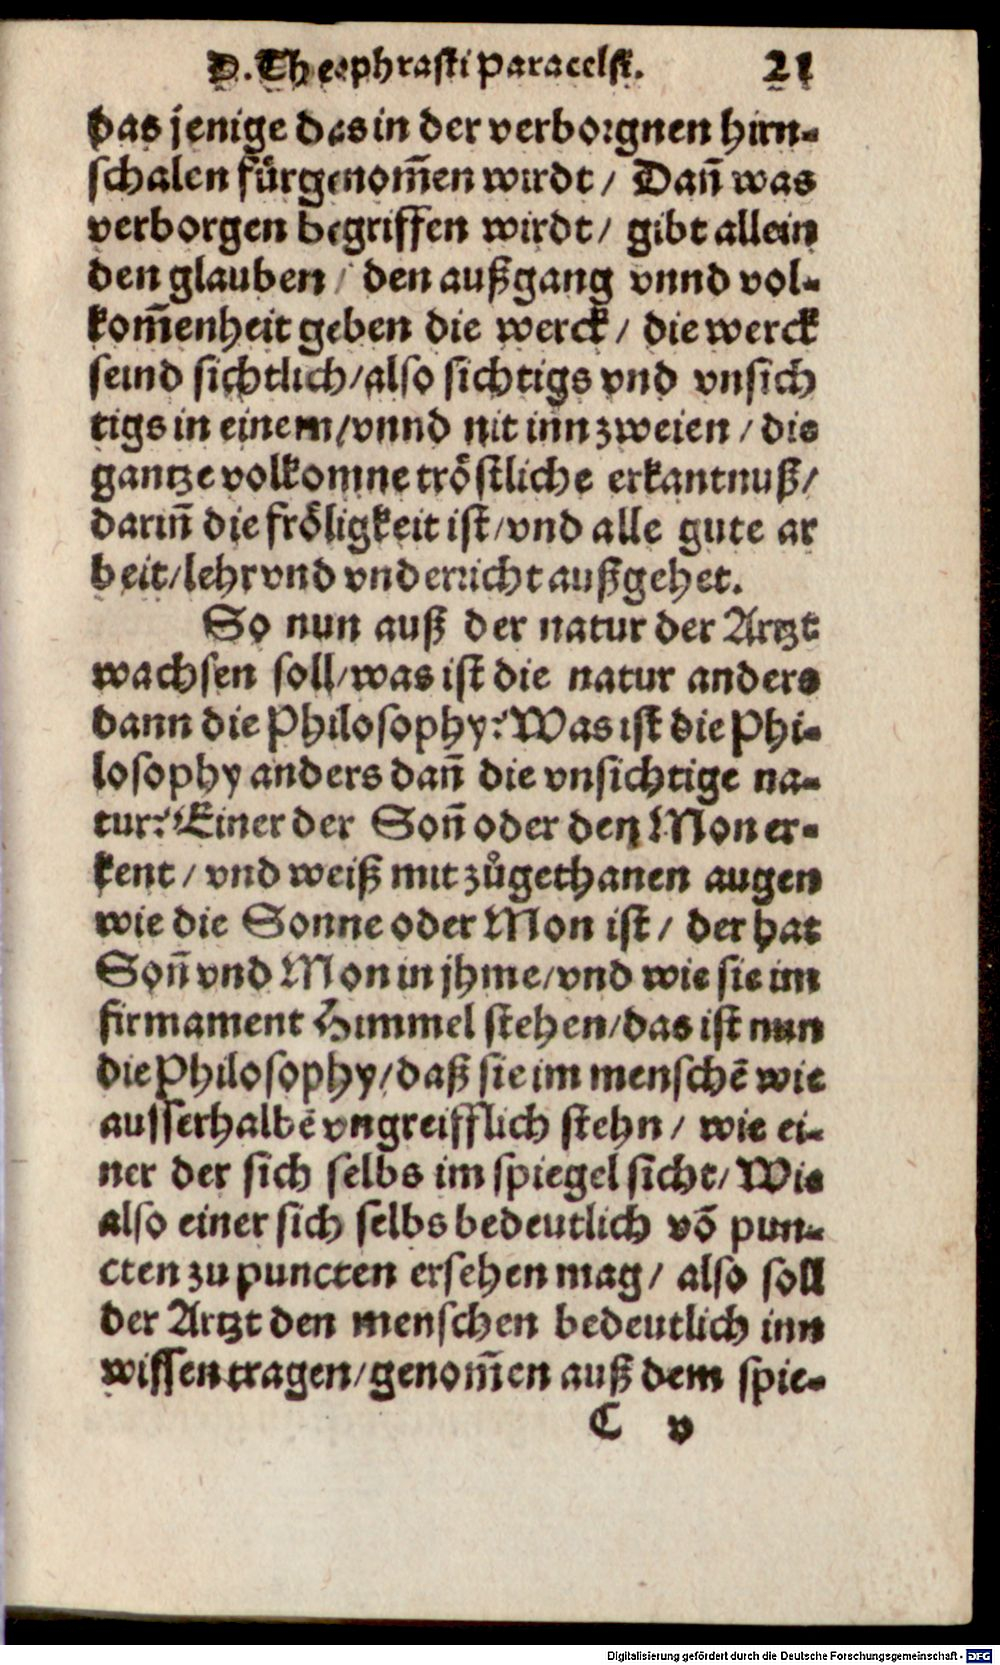 D. Theophrasti Paracelsi. 21
das jenige das in der verborgnen hirn-
schalen fürgenom̃en wirdt / Dañ was
verborgen begriffen wirdt / gibt allein
den glauben / den außgang vnnd vol-
kom̃enheit geben die werck / die werck
seind sichtlich / also sichtigs vnd vnsich
tigs in einem / vnnd nit inn zweien / die
gantze volkomne tröstliche erkantnuß /
dariñ die fröligkeit ist / vnd alle gute ar
beit / lehr vnd vnderricht außgehet.
So nun auß der natur der Artzt
wachsen soll / was ist die natur anders
dann die Philosophy? Was ist die Phi-
losophy anders dañ die vnsichtige na-
tur? Einer der Soñ oder den Mon er-
kent / vnd weiß mit zůgethanen augen
wie die Sonne oder Mon ist / der hat
Soñ vnd Mon in jhme / vnd wie sie im
firmament Himmel stehen / das ist nun
die Philosophy / daß sie im menschẽ wie
ausserhalbẽ vngreifflich stehn / wie ei-
ner der sich selbs im spiegel sicht / Wie
also einer sich selbs bedeutlich võ pun-
cten zu puncten ersehen mag / also soll
der Artzt den menschen bedeutlich inn
wissen tragen / genom̃en auß dem spie-
C v
Digitalisierung gefördert durch die Deutsche Forschungsgemeinschaft - DFG